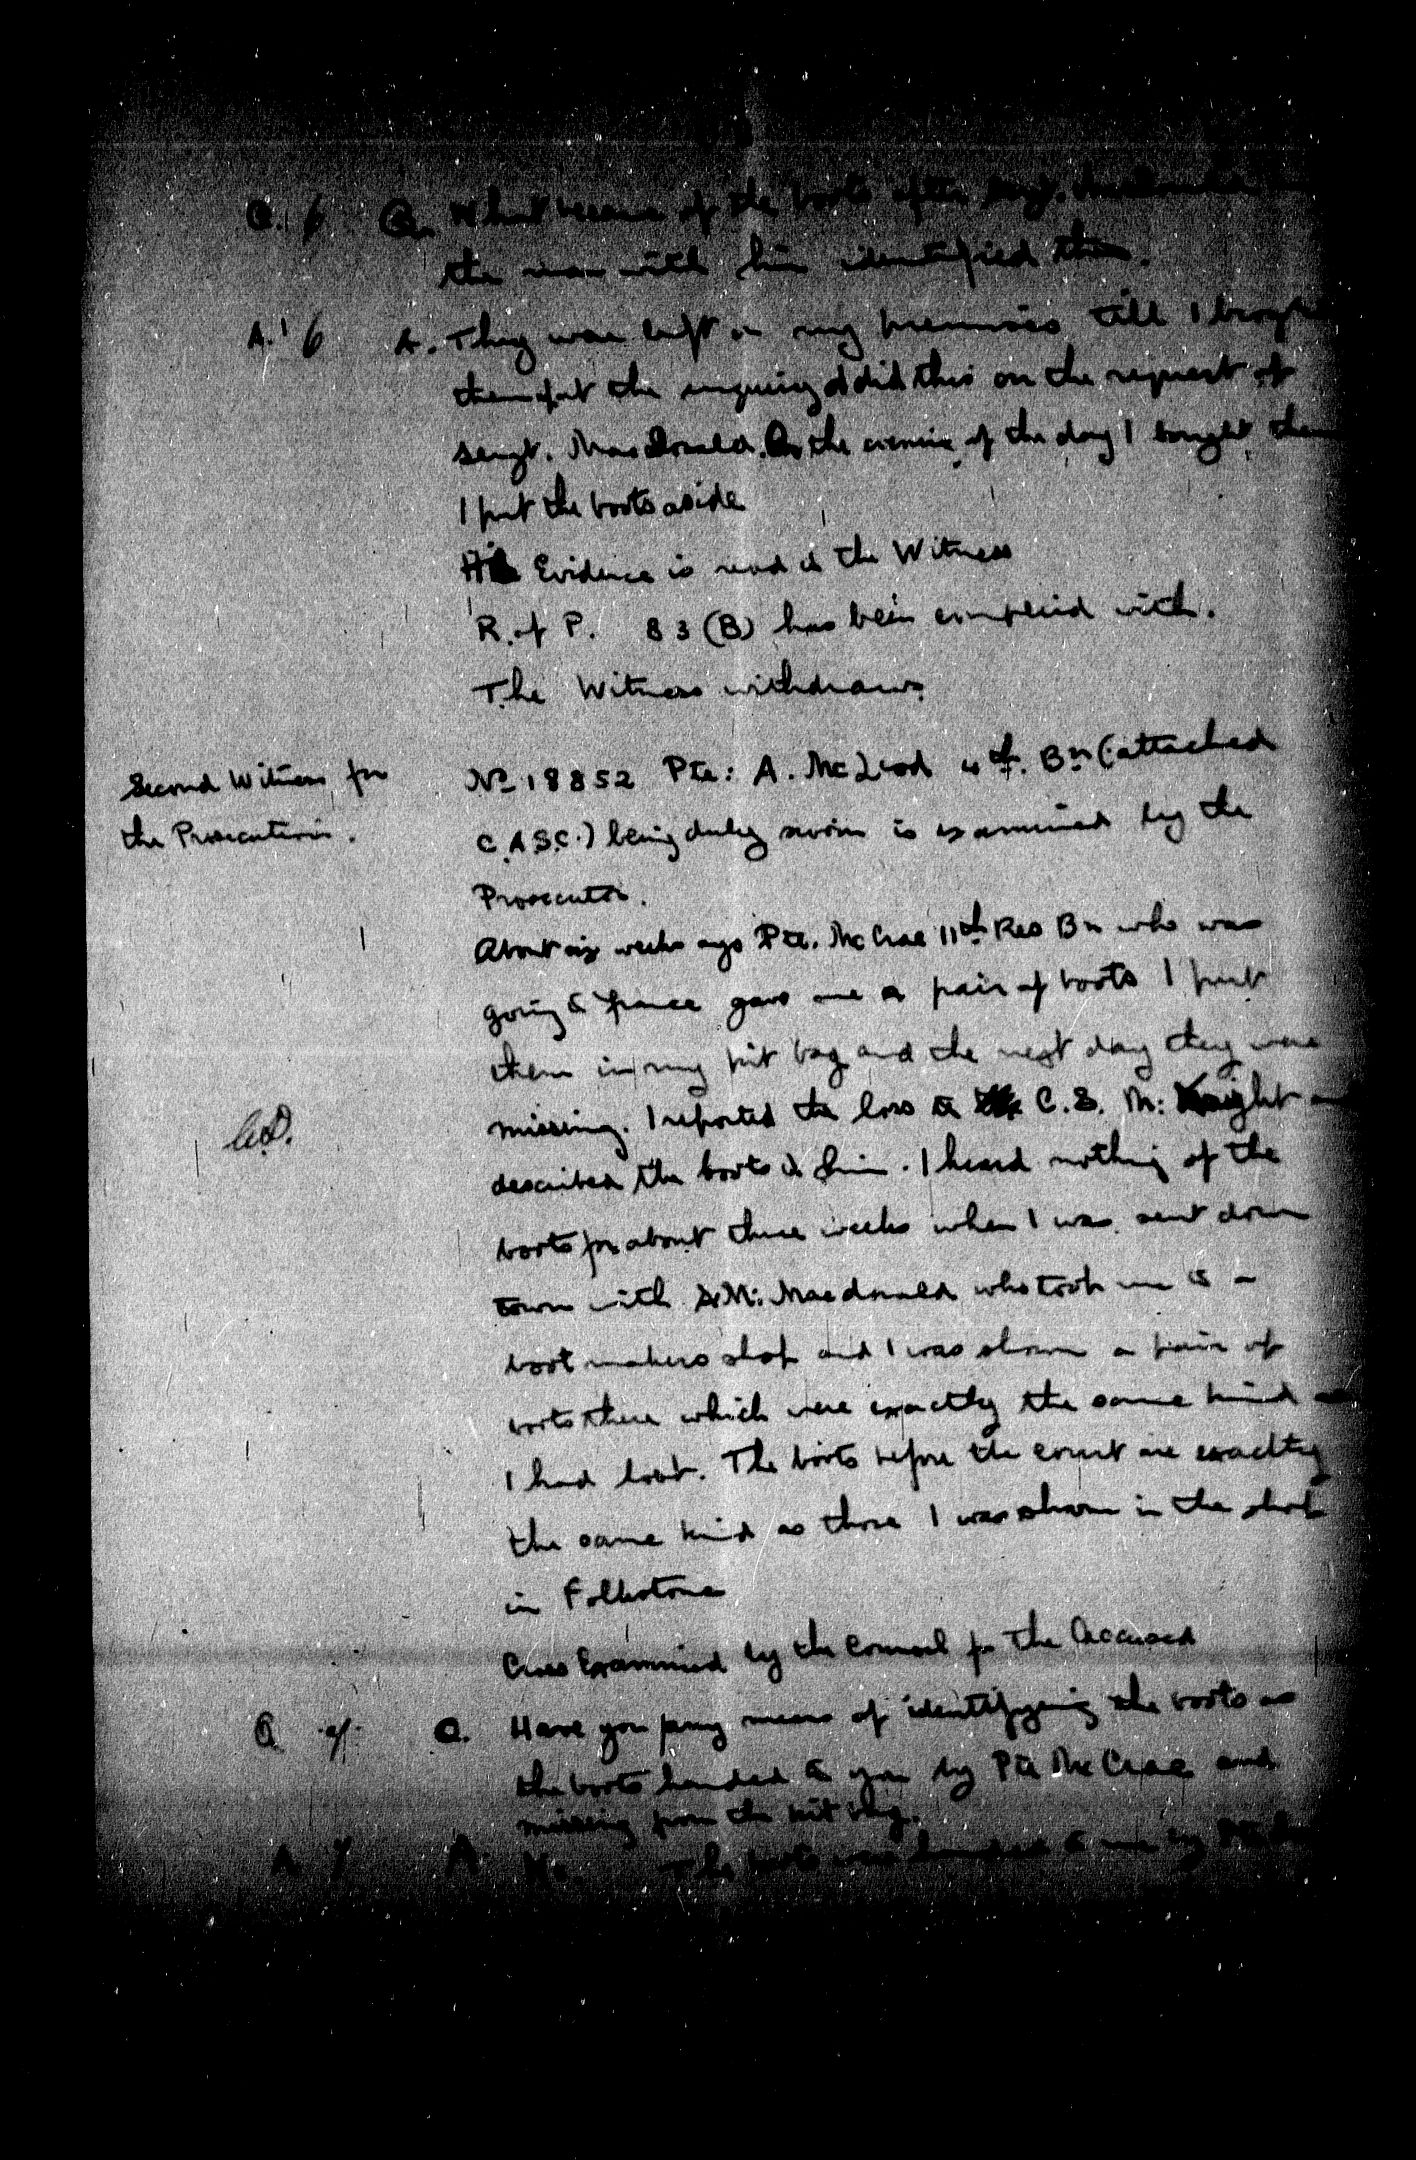 Q. 6 Q. What became of the boots after Sergt. Macdonald
the man with him identified them.
A. 6 A. They were left in my premises till I brought
them at the enquiry I did this on the request of
Sergt. MacDonald. On the evening of the day I bought them
I put the boots aside
His Evidence is read to the Witness
R. of P. 83 (B) has been complied with.
The Witness withdraws.
Second Witness for
the Prosecution.
No 18852 Pte: A. McLeod 4th. Bn (attached
C.A.S.C.) being duly sworn is examined by the
Prosecutor.
About six weeks ago Pte. McCrae 11th Res Bn who was
going to France gave me a pair of boots I put
them in my kit bag and the next day they were
missing. I reported the loss to C. S. M: Knight and
described the boots to him. I heard nothing of the
boots for about three weeks when I was sent down
town with S.M: Macdonald who took me to -
boot makers shop and I was shown a pair of
boots there which were exactly the same kind as
I had lost. The boots before the court are exactly
the same kind as those I was shown in the shop
in Folkstone
Cross Examined by the Counsel for the Accused
Q. 7. Q. Have you any means of identifying the boots as
the boots handed to you by Pte McCrae and
missing from the kit bag.
A. 7 A. No. The boots were handed to me by Pte